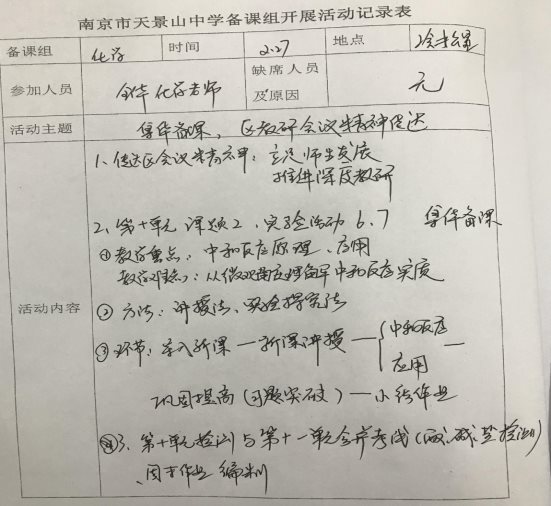 南京市天景山中学备课组开展活动记录表
备课组 化学 时间 2.27 地点
参加人员 全体化学老师 缺席人员及原因 无
活动主题 集体备课，区教研会议精神传达
活动内容
1、传达区会议精神：立足师生发展
推进深度教研
2、第十单元 课题2、实验活动 6、7 集体备课
①教学重点：中和反应原理、应用
教学难点：从微观角度理解中和反应实质
②方法：讲授法、实验探究法
③环节：导入新课—新课讲授—{中和反应
应用 —
巩固提高（习题突破）—小结作业
3、第十单元检测与第十一单元合并考试（酸、碱、盐检测）
、周末作业编制